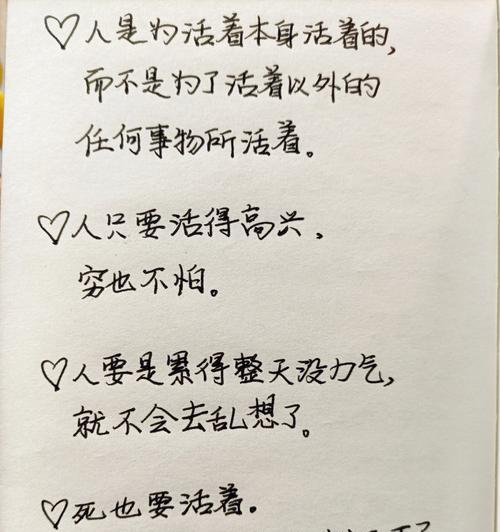 ♡人是为活着本身活着的,
而不是为了活着以外的
任何事物所活着。
♡人只要活得高兴,
穷也不怕。
♡人要是累得整天没力气,
就不会去乱想了。
♡死也要活着。